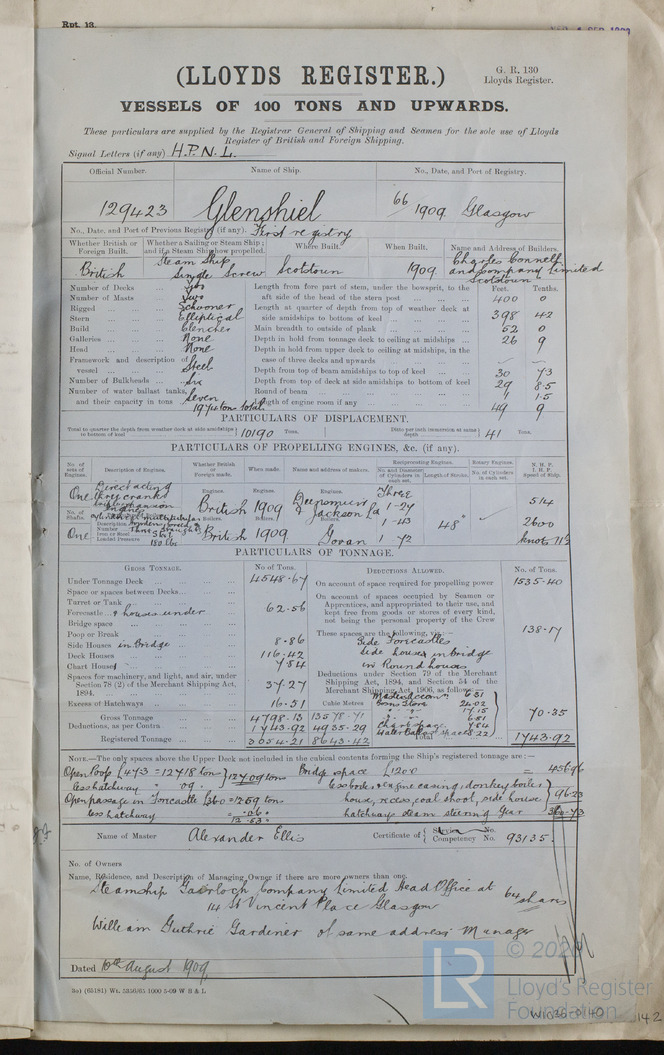 Rpt. 13.
G. R. 130
(LLOYDS REGISTER.)
Lloyds Register.
VESSELS OF 100 TONS AND UPWARDS.
These particulars are supplied by the Registrar General of Shipping and Seamen for the sole use of Lloyds
Register of British and Foreign Shipping.
Signal Letters (if any) H.P.N.L.
Official Number. Name of Ship. No., Date, and Port of Registry.
129423 Glenshiel 66/1909 Glasgow
No., Date, and Port of Previous Registry (if any). First registry
Whether British or Foreign Built. Whether a Sailing or Steam Ship; and if a Steam Ship how propelled. Where Built. When Built. Name and Address of Builders.
British Steam Ship Single Screw Scotstoun 1909 Charles Connell and Company Limited Scotstoun
Number of Decks Two
Number of Masts Two
Rigged Schooner
Stern Elliptical
Build Clencher
Galleries None
Head None
Framework and description of vessel Steel
Number of Bulkheads Six
Number of water ballast tanks, and their capacity in tons Seven 1974 ton total
Feet. Tenths.
Length from fore part of stem, under the bowsprit, to the aft side of the head of the stern post 400 0
Length at quarter of depth from top of weather deck at side amidships to bottom of keel 398 42
Main breadth to outside of plank 52 0
Depth in hold from tonnage deck to ceiling at midships 26 9
Depth in hold from upper deck to ceiling at midships, in the case of three decks and upwards
Depth from top of beam amidships to top of keel 30 73
Depth from top of deck at side amidships to bottom of keel 29 8.5
Round of beam 1 1.5
Length of engine room if any 49 9
PARTICULARS OF DISPLACEMENT.
Total to quarter the depth from weather deck at side amidships to bottom of keel 10190 Tons. Ditto per inch immersion at same depth 41 Tons.
PARTICULARS OF PROPELLING ENGINES, &c. (if any).
No. of sets of Engines. Description of Engines. Whether British or Foreign made. When made. Name and address of makers. Reciprocating Engines. Rotary Engines. N.H.P. I.H.P. Speed of Ship.
No. and Diameter of Cylinders in each set. Length of Stroke. No. of Cylinders in each set.
One Direct acting three cranks triple expansion Engines. British Engines. 1909 Engines. Dunsmuir & Jackson Ld Three 1-27 1-43 1-72 48" 514 2600 knots 11½
No. of Shafts. One
Description
Number Three
Iron or Steel Steel
Loaded Pressure 180 lbs
Boilers. British Boilers. 1909 Boilers. Govan
PARTICULARS OF TONNAGE.
GROSS TONNAGE. No. of Tons.
Under Tonnage Deck 4548.67
Space or spaces between Decks
Turret or Tank
Forecastle & houses under 62.56
Bridge space
Poop or Break
Side Houses in Bridge 8.86
Deck Houses 116.42
Chart House 7.84
Spaces for machinery, and light, and air, under Section 78 (2) of the Merchant Shipping Act, 1894. 37.27
Excess of Hatchways 16.51
Cubic Metres
Gross Tonnage 4798.13 13578.71
Deductions, as per Contra 1743.92 4935.29
Registered Tonnage 3054.21 8643.42
DEDUCTIONS ALLOWED. No. of Tons.
On account of space required for propelling power 1535.40
On account of spaces occupied by Seamen or Apprentices, and appropriated to their use, and kept free from goods or stores of every kind, not being the personal property of the Crew 138.17
These spaces are the following, viz.:—
Side Forecastles
Side houses in bridge
in Round houses
Deductions under Section 79 of the Merchant Shipping Act, 1894, and Section 54 of the Merchant Shipping Act, 1906, as follows:—
Master's accom 6.51
Bosn Store 24.02
17.15
6.81
Chart space 7.84
Water Ballast space 8.22
70.35
Total 1743.92
NOTE.—The only spaces above the Upper Deck not included in the cubical contents forming the Ship's registered tonnage are:—
Open Poop
less hatchway .09
127.09 tons
Bridge space
less boiler & engine casing, donkey boiler
house, recess, coal shoot, side house
hatchways steam steering gear
456.96
96.23
360.73
Open passage in Forecastle
less hatchway
Name of Master Alexander Ellis Certificate of Service Competency No. 93135.
No. of Owners
Name, Residence, and Description of Managing Owner if there are more owners than one.
Steamship Gairloch Company Limited Head Office at 64 shares
14 St Vincent Place Glasgow
William Guthrie Gardiner of same address Manager
Dated 10th August 1909
3a) (65181) Wt. 5856/65 1000 5-09 W B & L
LR
Lloyd's Register
Foundation
142